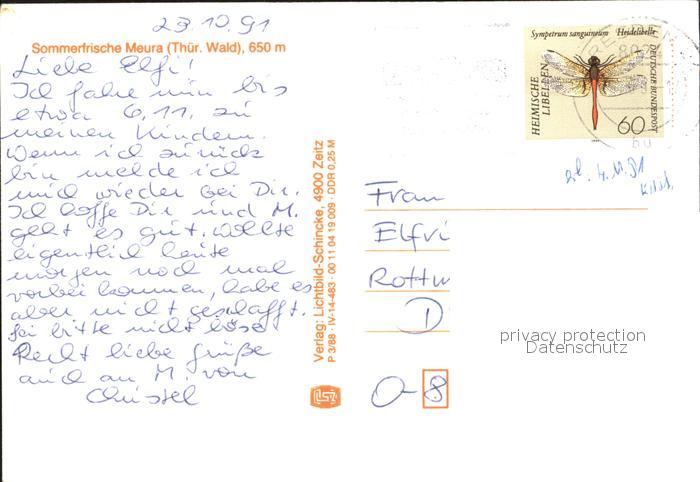 23.10.91
Sommerfrische Meura (Thür. Wald), 650 m
Liebe Elfi!
Ich fahre nun bis
etwa 6.11. zu
meinen Kindern.
Wenn ich zurück
bin melde ich
mich wieder bei Dir.
Ich hoffe Dir und M.
geht es gut. Wollte
eigentlich heute
morgen noch mal
vorbei kommen, habe es
aber nicht geschafft.
Sei bitte nicht böse
Recht liebe Grüße
auch an M. von
Christel
Verlag: Lichtbild-Schincke, 4900 Zeitz
P 3/88 · IV-14-483 · 00 11 04 19 009 · DDR 0,25 M
Sympetrum sanguineum Heidelibelle
HEIMISCHE
LIBELLEN
DEUTSCHE BUNDESPOST
60
4.11.91
Frau
Elfri
Rottw
D
O-8
privacy protection
Datenschutz